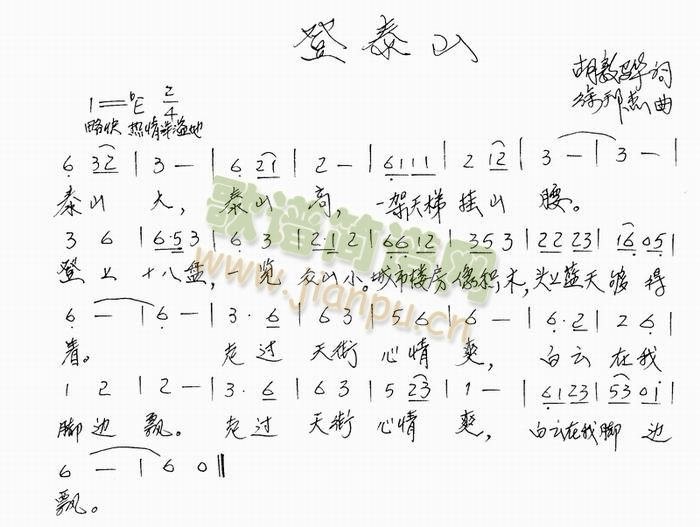 登泰山
胡敦骅词
徐邦杰曲
1=♭E 2/4
略快 热情洋溢地
6 32 | 3 — | 6 21 | 2 — | 6111 | 2 12 | 3 — | 3 — |
泰山大,泰山高,一架天梯挂山腰。
3 6 | 6·5 3 | 6· 3 | 2·1 2 | 6612 | 35 3 | 22 23 | 16 05 |
登上十八盘,一览众山小。城市楼房像积木,头上蓝天够得
6 — | 6 — | 3· 6 | 6 3 | 5 6 | 6 — | 6· 2 | 2 6 |
着。走过天街心情爽,白云在我
1 2 | 2 — | 3· 6 | 6 3 | 5 23 | 1 — | 6123 | 53 01 |
脚边飘。走过天街心情爽,白云在我脚边
6 — | 6 0 ‖
飘。
歌谱简谱网
www.jianpu.cn